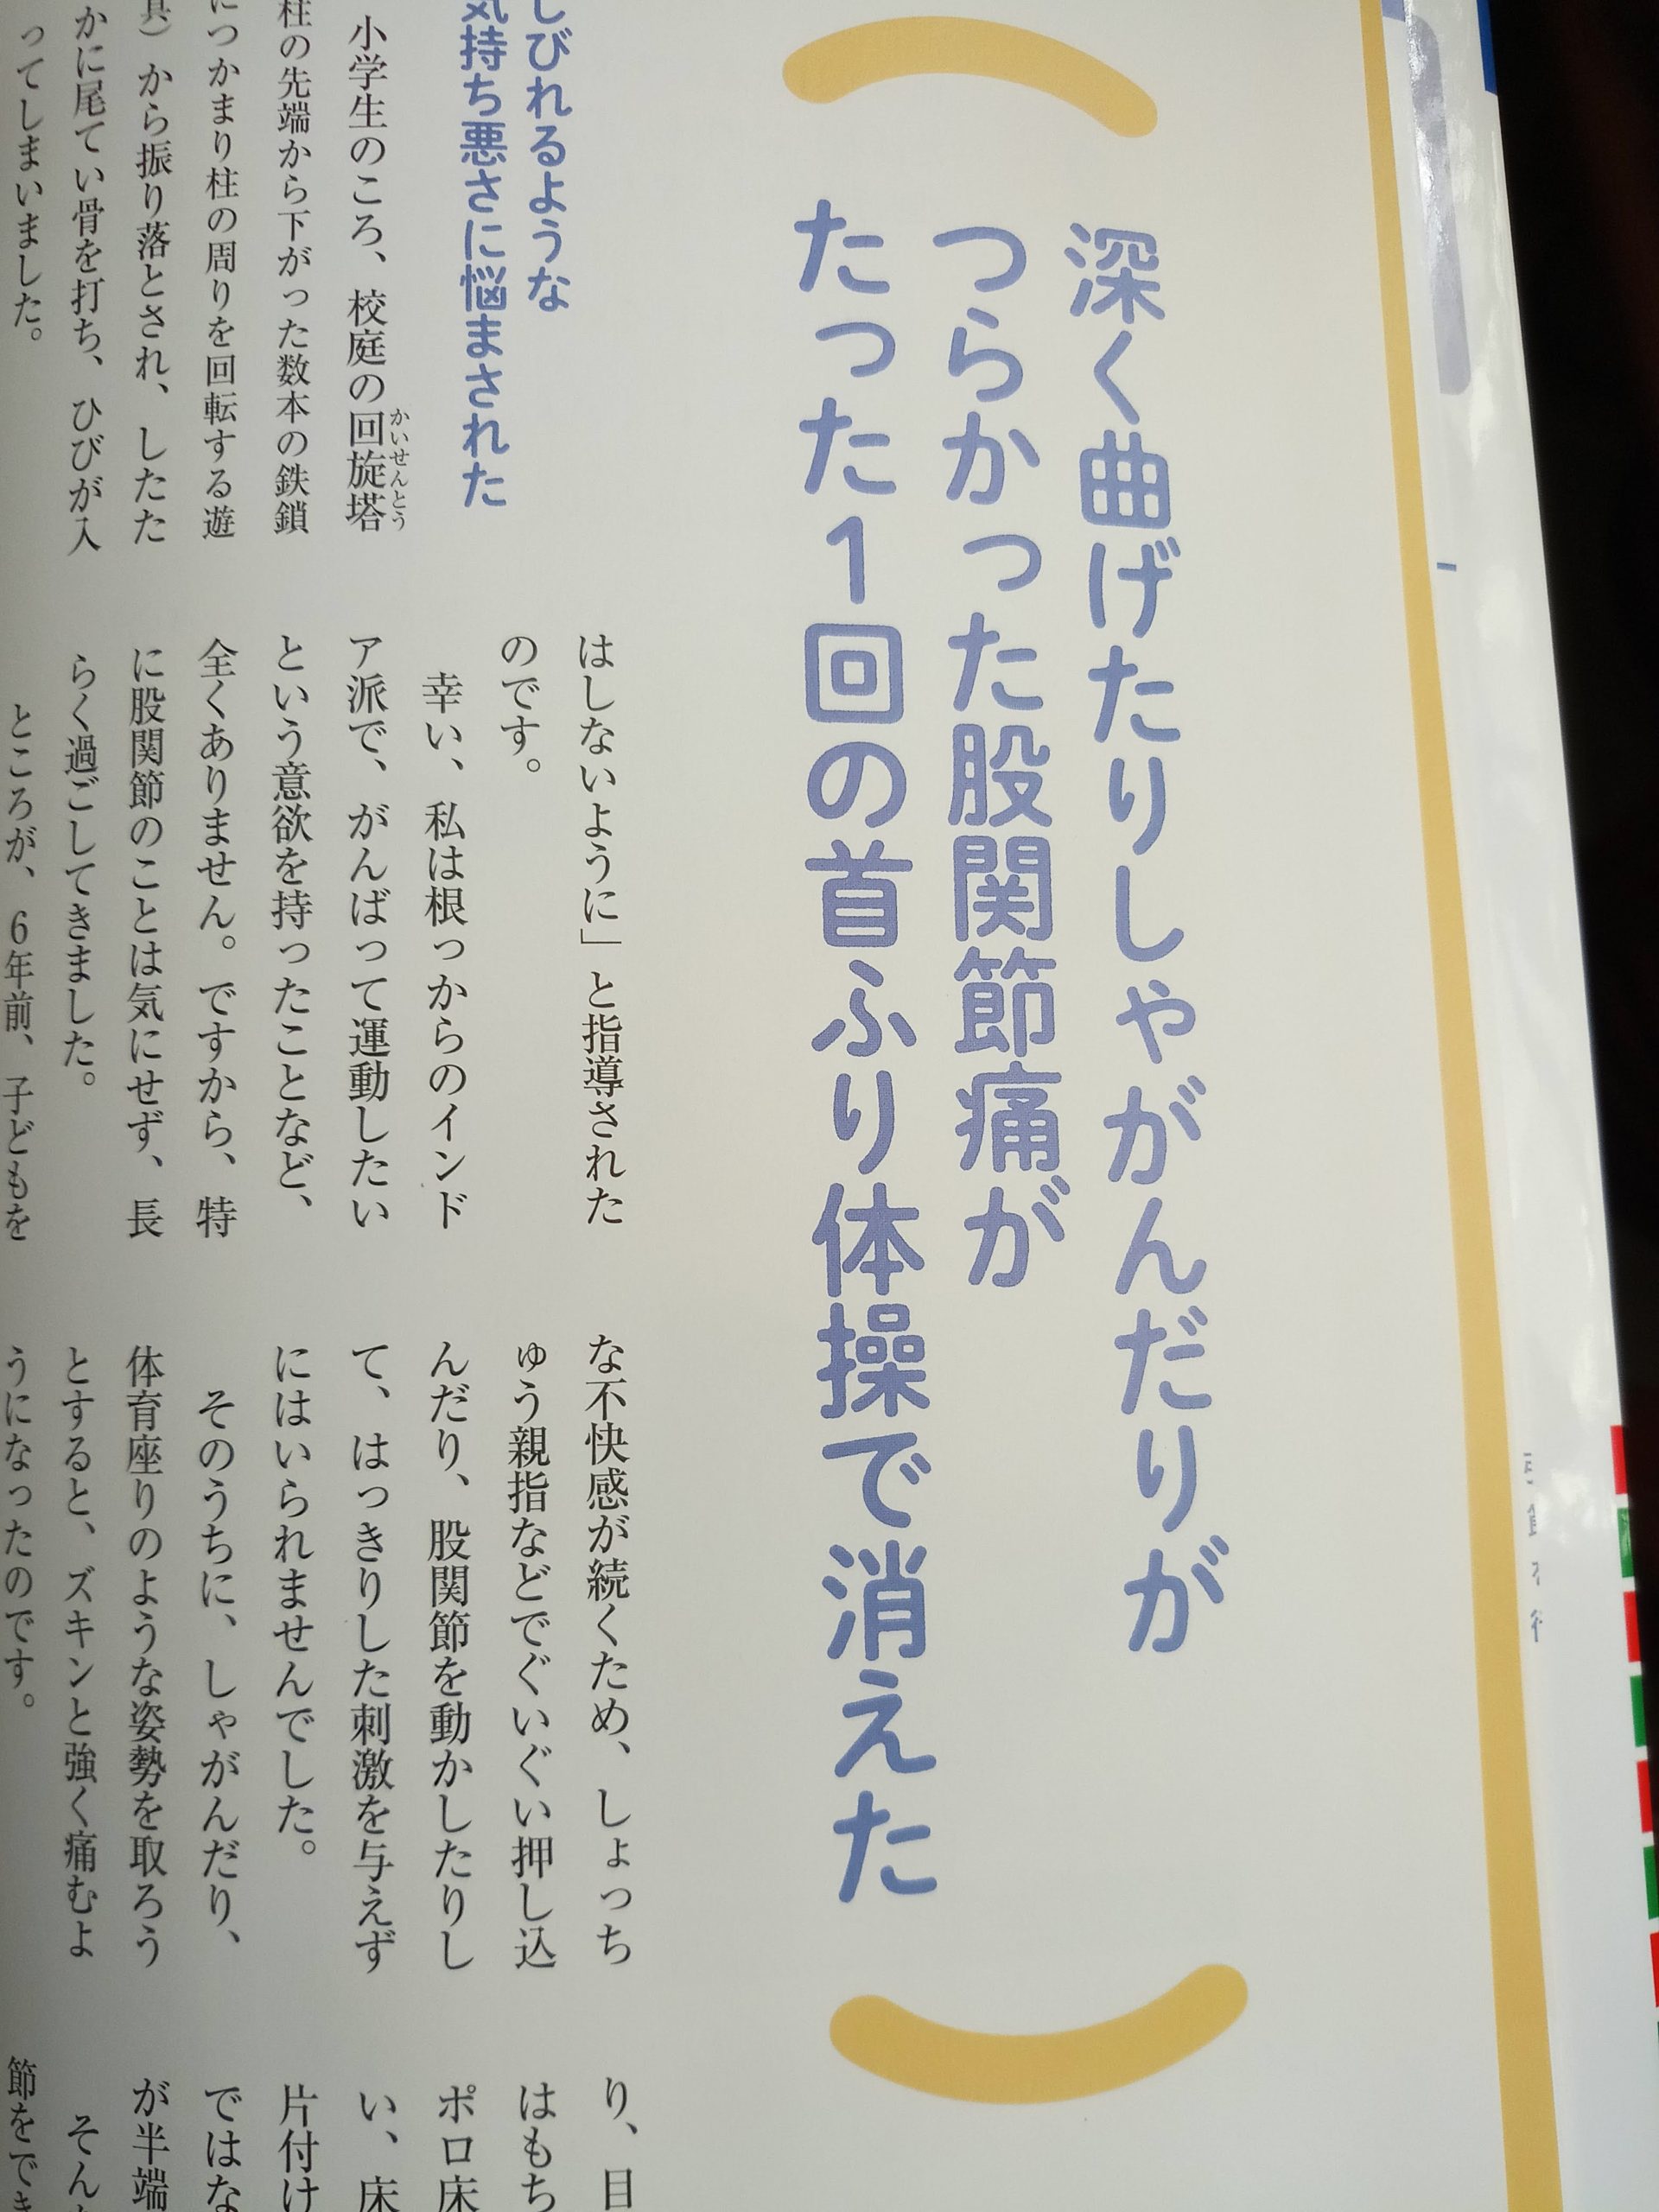 深く曲げたりしゃがんだりが
つらかった股関節痛が
たった1回の首ふり体操で消えた
しびれるような
気持ち悪さに悩まされた
小学生のころ、校庭の回旋塔
かいせんとう
柱の先端から下がった数本の鉄鎖
につかまり柱の周りを回転する遊
具）から振り落とされ、したた
かに尾てい骨を打ち、ひびが入
ってしまいました。
はしないように」と指導された
のです。
幸い、私は根っからのインド
ア派で、がんばって運動したい
という意欲を持ったことなど、
全くありません。ですから、特
に股関節のことは気にせず、長
らく過ごしてきました。
ところが、6年前、子どもを
な不快感が続くため、しょっち
ゅう親指などでぐいぐい押し込
んだり、股関節を動かしたりし
て、はっきりした刺激を与えず
にはいられませんでした。
そのうちに、しゃがんだり、
体育座りのような姿勢を取ろう
とすると、ズキンと強く痛むよ
うになったのです。
り、目
はもち
ポロ床
い、床
片付け
ではな
が半端
そん
節をでき